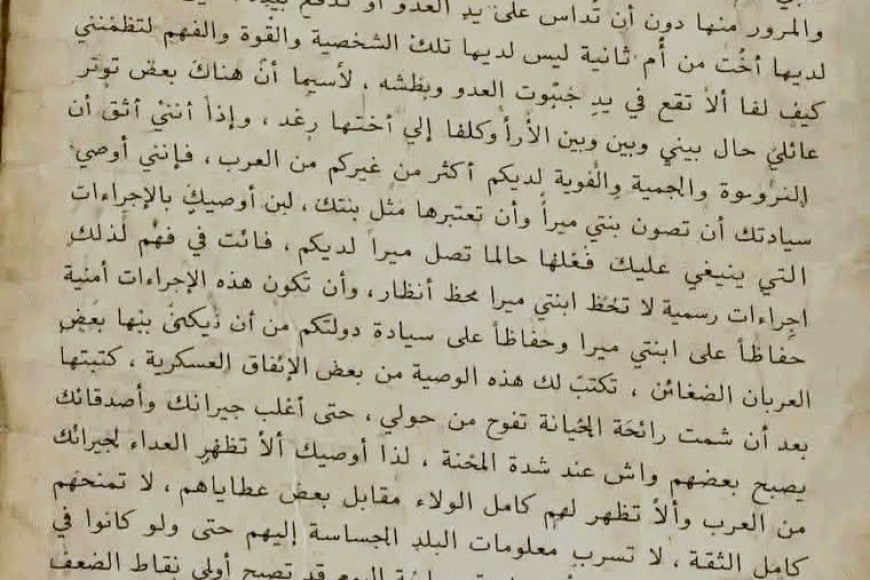 والمرور منها دون أن تُداس على يدِ العدو أو تدفع بيده
لديها أخُت من أُم ثانية ليس لديها تلك الشخصية والقُوة والفهم لتظمْنني
كيف لفا ألاّ تقع في يدِ جبّبوت العدو وبظشه ، لأسيما أنّ هناك بعض توتر
عائليَ حال بيني وبين وبين الأرأ وكلفا إلي أختها رغد ، وإذاً أننيْ أثق أن
والجمية والفوية لديكم أكثر من غيركم من العرب ، فإنني أوصي
سيادتك أن تصون بنتي ميراً وأن تعتبرها مثل بنتك، لبن أوصيكَ بالإجراءات
التي ينيغي عليك فعْلها حالما تصل ميراً لديكم ، فائت في فهْم لذلك
اجراءات رسمية لا تخظ ابنتي ميرا محظ أنظار، وأن تكون هذه الإجراءات أمنية
حفاظاً على ابنتي ميرا وحفاظاً على سيادة دولتكم من أن بنْها بعض
العربان الضغائن ، تكتبَ لك هذه الوصية من بعض الإنفاق العسكرية ، كتبتها
بعد أن شمت رائحة الخيانة تفوح من حولي ، حتى أغلب جيرانك وأصدقائك
يصبح بعضهم واش عند شدة المحْنة ، لذا أوصيك ألاّ تظهر العداء لجيرانك
من العرب وألاّ تظهر لهم كامل الولاء مقابل بعض عطاياهم ، لا تمنحهم
كامل الثقة ، لا تسرب معلومات البلد الجساسة إليهم حتى ولو كانوا في
اليوم قد تصبح أولى نقاط الضعف